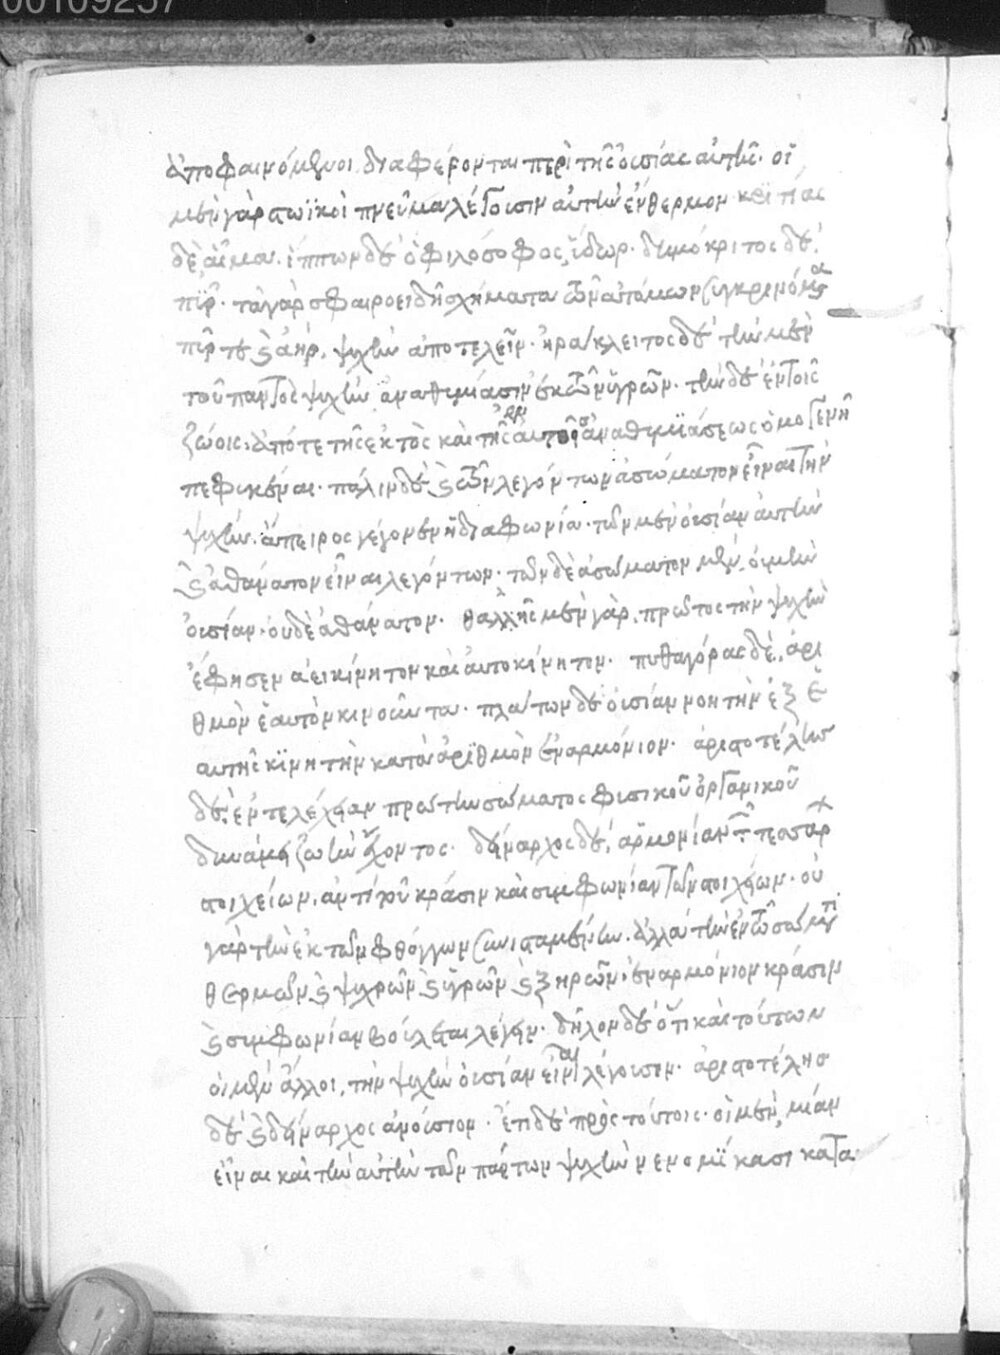 00109257
ἀποφαινόμενοι διαφέρονται περὶ τῆς οὐσίας αὐτῆς. οἱ
μὲν γὰρ στωϊκοὶ πνεῦμα λέγουσιν αὐτὴν ἔνθερμον. κριτίας
δὲ αἷμα. ἵππων δὲ ὁ φιλόσοφος, ὕδωρ. δημόκριτος δὲ,
πῦρ. τὰ γὰρ σφαιροειδῆ σχήματα τῶν ἀτόμων συγκρινόμενα
πῦρ τε καὶ ἀὴρ, ψυχὴν ἀποτελεῖν. ἡράκλειτος δὲ τὴν μὲν
τοῦ παντὸς ψυχὴν ἀναθυμίασιν ἐκ τῶν ὑγρῶν. τὴν δὲ ἐν τοῖς
ζώοις, ἀπό τε τῆς ἐκτὸς καὶ τῆς ἐν αὐτοῖς ἀναθυμιάσεως ὁμογενῆ
πεφυκέναι. πάλιν δὲ καὶ τῶν λεγόντων ἀσώματον εἶναι τὴν
ψυχὴν, ἄπειρος γέγονεν ἡ διαφωνία. τῶν μὲν οὐσίαν αὐτὴν
καὶ ἀθάνατον εἶναι λεγόντων. τῶν δὲ ἀσώματον μὲν, οὐ μὴν
οὐσίαν. οὐδὲ ἀθάνατον. θαλλῆς μὲν γὰρ, πρῶτος τὴν ψυχὴν
ἔφησεν ἀεικίνητον καὶ αὐτοκίνητον. πυθαγόρας δὲ, ἀρι
θμὸν ἑαυτὸν κινοῦντα. πλάτων δὲ οὐσίαν νοητὴν ἐξ ἑ
αυτῆς κινητὴν κατὰ ἀριθμὸν ἐναρμόνιον. ἀριστοτέλης
δὲ, ἐντελέχειαν πρώτην σώματος φυσικοῦ ὀργανικοῦ
δυνάμει ζωὴν ἔχοντος. δείναρχος δὲ, ἁρμονίαν τῶν τεσσάρων
στοιχείων, ἀντὶ τοῦ κρᾶσιν καὶ συμφωνίαν τῶν στοιχείων. οὐ
γὰρ τὴν ἐκ τῶν φθόγγων συνισταμένην. ἀλλὰ τὴν ἐν τῷ σώματι
θερμῶν καὶ ψυχρῶν καὶ ὑγρῶν καὶ ξηρῶν. ἐναρμόνιον κρᾶσιν
καὶ συμφωνίαν βούλεται λέγειν. δῆλον δὲ ὅτι καὶ τούτων
οἱ μὲν ἄλλοι, τὴν ψυχὴν οὐσίαν εἶναι λέγουσιν. ἀριστοτέλης
δὲ καὶ δείναρχος ἀνούσιον. ἔτι δὲ πρὸς τούτοις. οἱ μὲν, μίαν
εἶναι καὶ τὴν αὐτὴν τῶν πάντων ψυχὴν νενομίκασι κατα